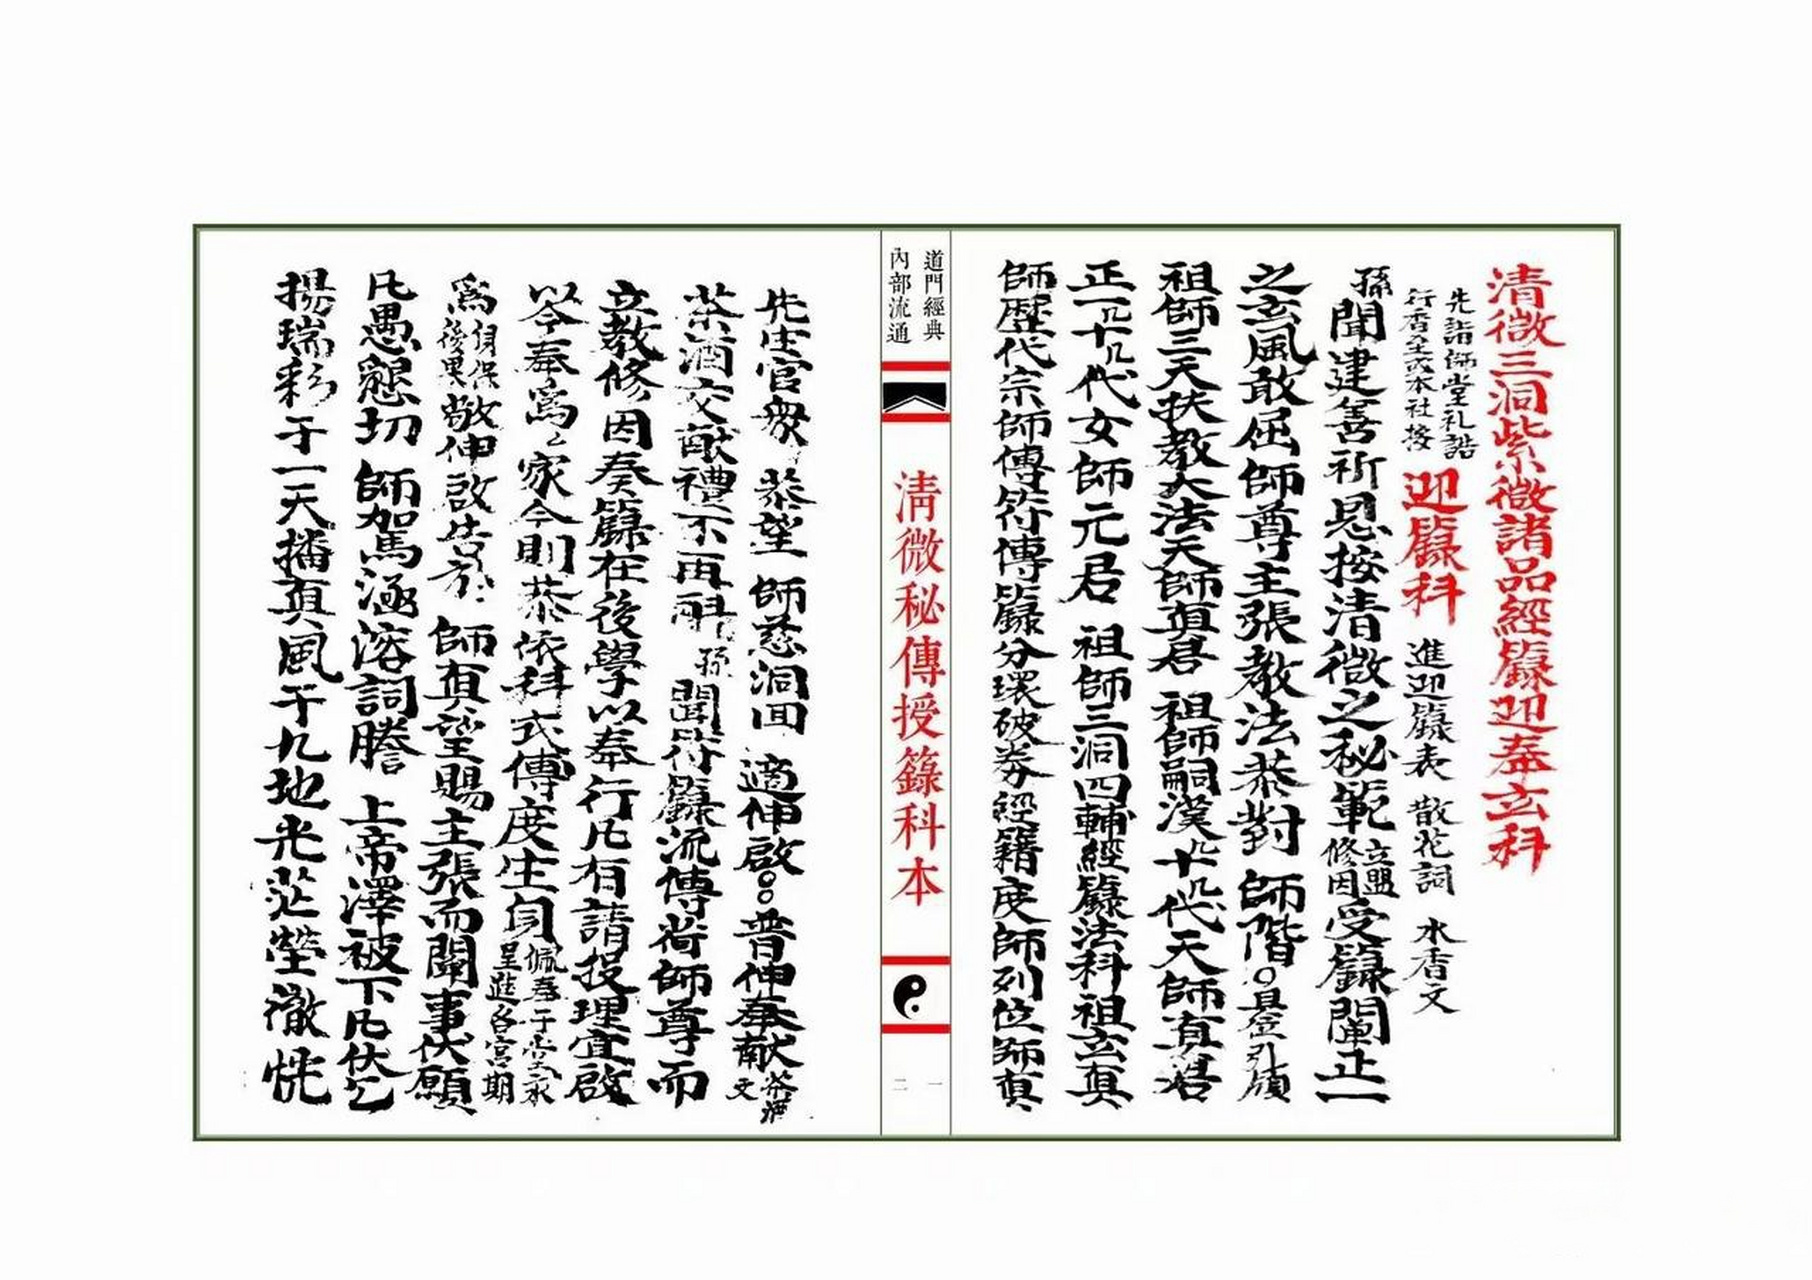 清微三洞紫微諸品經籙迎奉玄科
先詣師堂礼誥
行香至本社接
迎籙科 進迎籙表 散花詞 水香文
孫聞建善祈恩按清微之秘範立盟修因受籙闡正一
之玄風敢屈師尊主張教法恭對 師階。具位引領
祖師三天扶教大法天師真君 祖師嗣漢几十几代天師真君
正一几十几代女師元君 祖師三洞四輔經籙法科祖玄真
師歷代宗師傳符傳籙分環破券經籍度師列位師真
道門經典
內部流通
清微秘傳授籙科本
一
二
先庄官衆 恭望 師慈洞回 適伸啟。。普伸奉献茶酒文
茶酒交献禮不再 孫聞符籙流傳尚師尊而
立教修因奏籙在後學以奉行凡有請投理宜啟
以今奉爲〻家今則恭依科式傳度生身佩奉于堂承呈進各宮期
爲身保後果敬伸啟告於 師真望賜主張而闡事伏願
凡愚懇切 師駕涵溶詞謄 上帝澤被下凡伏乞
揚瑞彩于一天播真風于九地光茫瑩徹恍